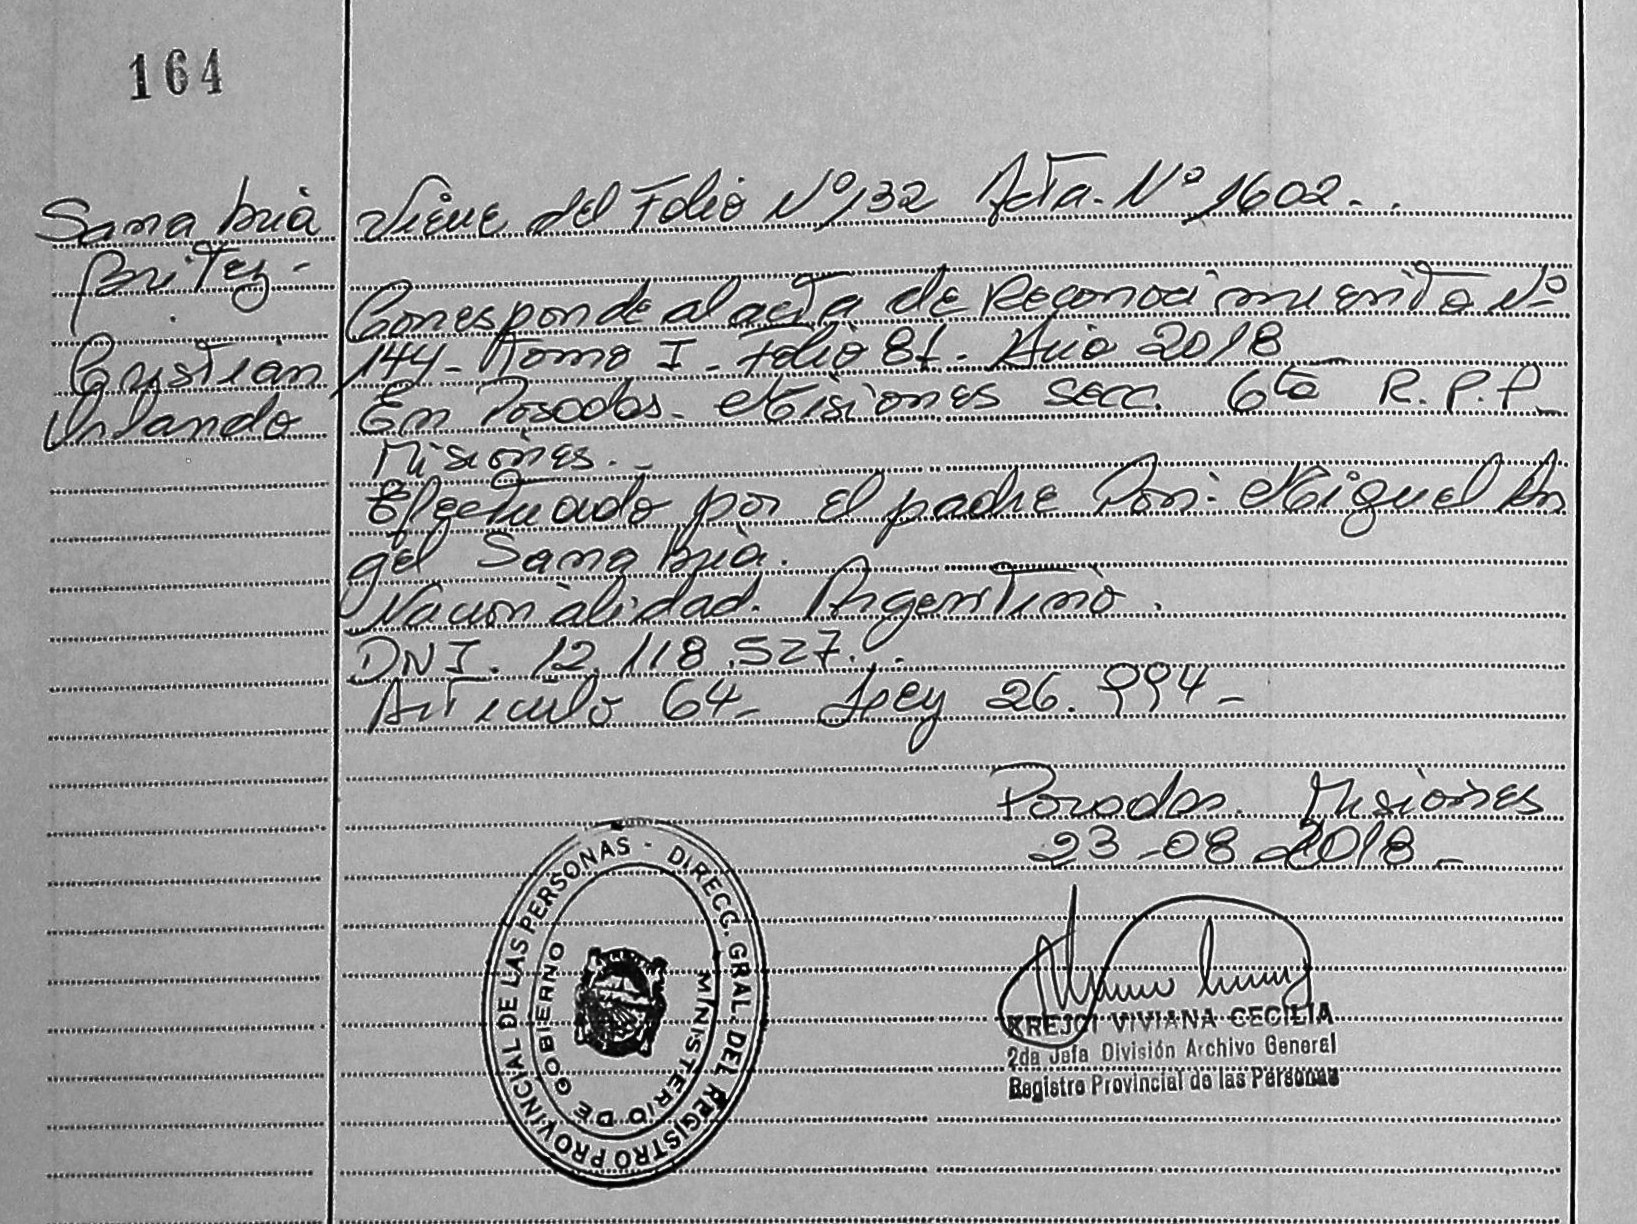 164
Sanabria
Britez-
Cristian
Orlando
Viene del Folio Nº 132 Acta. Nº 1602..
Corresponde al acta de Reconocimiento Nº
144- Tomo I - Folio 81. Año 2018
En Posadas- Misiones secc. 6ta R.P.P.
Misiones.-
Efectuado por el padre Don: Miguel An
gel Sanabria.
Nacionalidad. Argentino.
DNI. 12.118.527..
Artículo 64- Ley 26.994-
Posadas. Misiones
23-08-2018-
DIRECC. GRAL. DEL REGISTRO PROVINCIAL DE LAS PERSONAS -
MINISTERIO DE GOBIERNO
KREJCI VIVIANA CECILIA
2da Jefa División Archivo General
Registro Provincial de las Personas